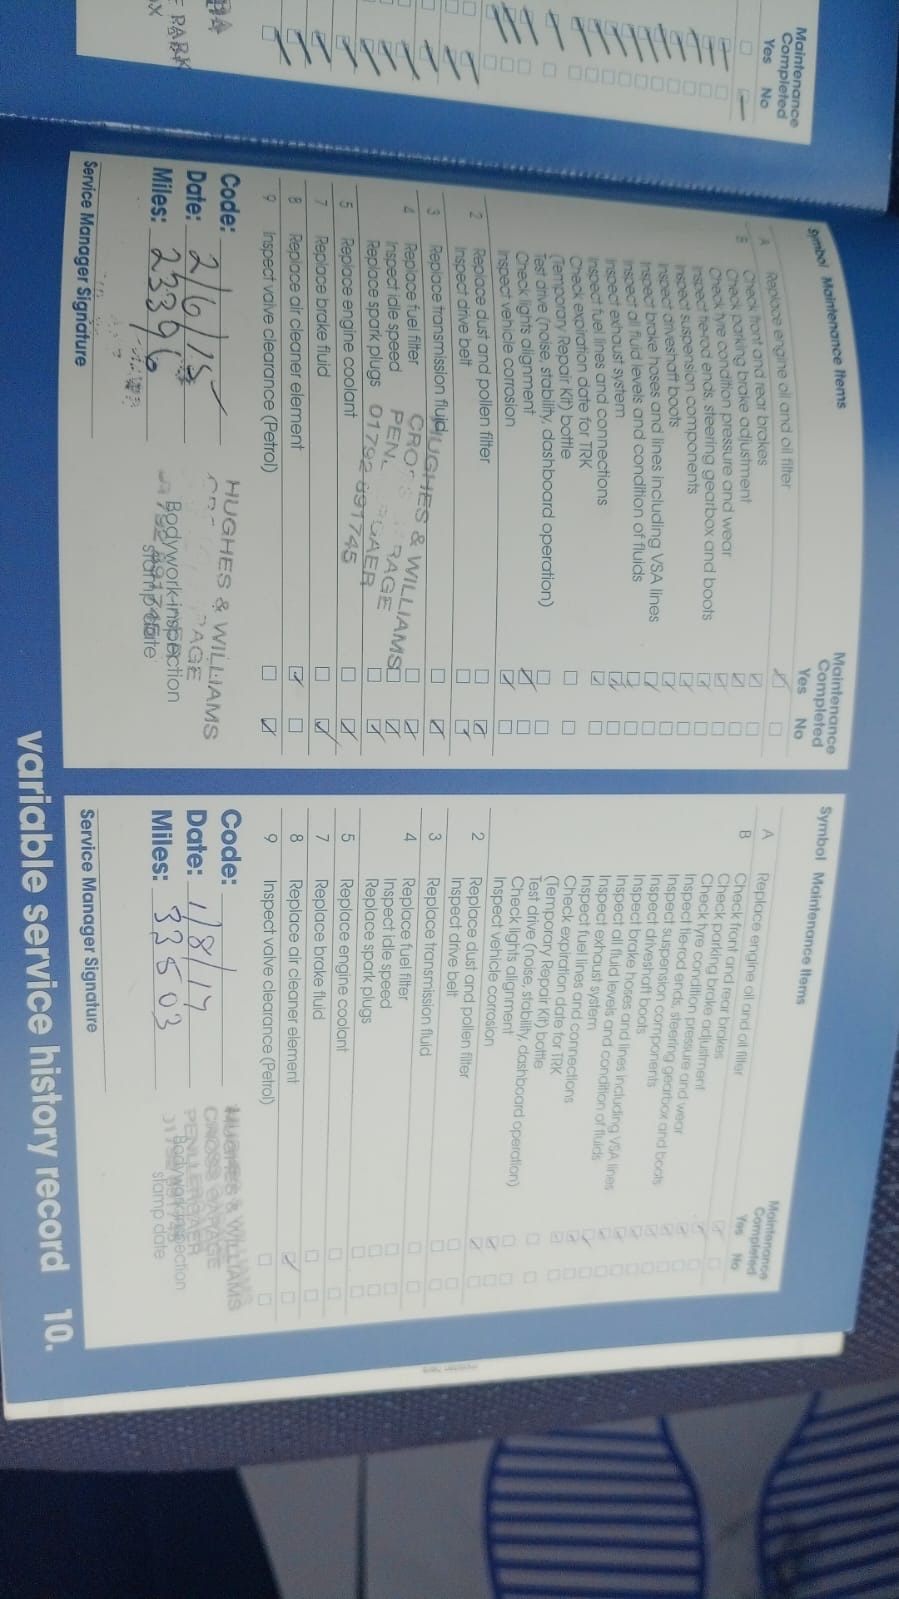 Maintenance
Completed
Yes No
PARK
Symbol Maintenance Items
Maintenance
Completed
Yes No
A Replace engine oil and oil filter
B Check front and rear brakes
Check parking brake adjustment
Check tyre condition pressure and wear
Inspect tie-rod ends, steering gearbox and boots
Inspect suspension components
Inspect driveshaft boots
Inspect brake hoses and lines including VSA lines
Inspect all fluid levels and condition of fluids
Inspect exhaust system
Inspect fuel lines and connections
Check expiration date for TRK
(Temporary Repair Kit) bottle
Test drive (noise, stability, dashboard operation)
Check lights alignment
Inspect vehicle corrosion
2 Replace dust and pollen filter
Inspect drive belt
3 Replace transmission fluid
4 Replace fuel filter
Inspect idle speed
Replace spark plugs
5 Replace engine coolant
7 Replace brake fluid
8 Replace air cleaner element
9 Inspect valve clearance (Petrol)
HUGHES & WILLIAMS
01792 891745
Code:
Date: 2/6/15
Miles: 23396
HUGHES & WILLIAMS
Bodywork inspection
stamp date
Service Manager Signature
Symbol Maintenance Items
Maintenance
Completed
Yes No
A Replace engine oil and oil filter
B Check front and rear brakes
Check parking brake adjustment
Check tyre condition pressure and wear
Inspect tie-rod ends, steering gearbox and boots
Inspect suspension components
Inspect driveshaft boots
Inspect brake hoses and lines including VSA lines
Inspect all fluid levels and condition of fluids
Inspect exhaust system
Inspect fuel lines and connections
Check expiration date for TRK
(Temporary Repair Kit) bottle
Test drive (noise, stability, dashboard operation)
Check lights alignment
Inspect vehicle corrosion
2 Replace dust and pollen filter
Inspect drive belt
3 Replace transmission fluid
4 Replace fuel filter
Inspect idle speed
Replace spark plugs
5 Replace engine coolant
7 Replace brake fluid
8 Replace air cleaner element
9 Inspect valve clearance (Petrol)
Code:
Date: 1/8/17
Miles: 33503
HUGHES & WILLIAMS
CROSS GARAGE
PENLLERGAER
Bodywork inspection
stamp date
Service Manager Signature
variable service history record 10.